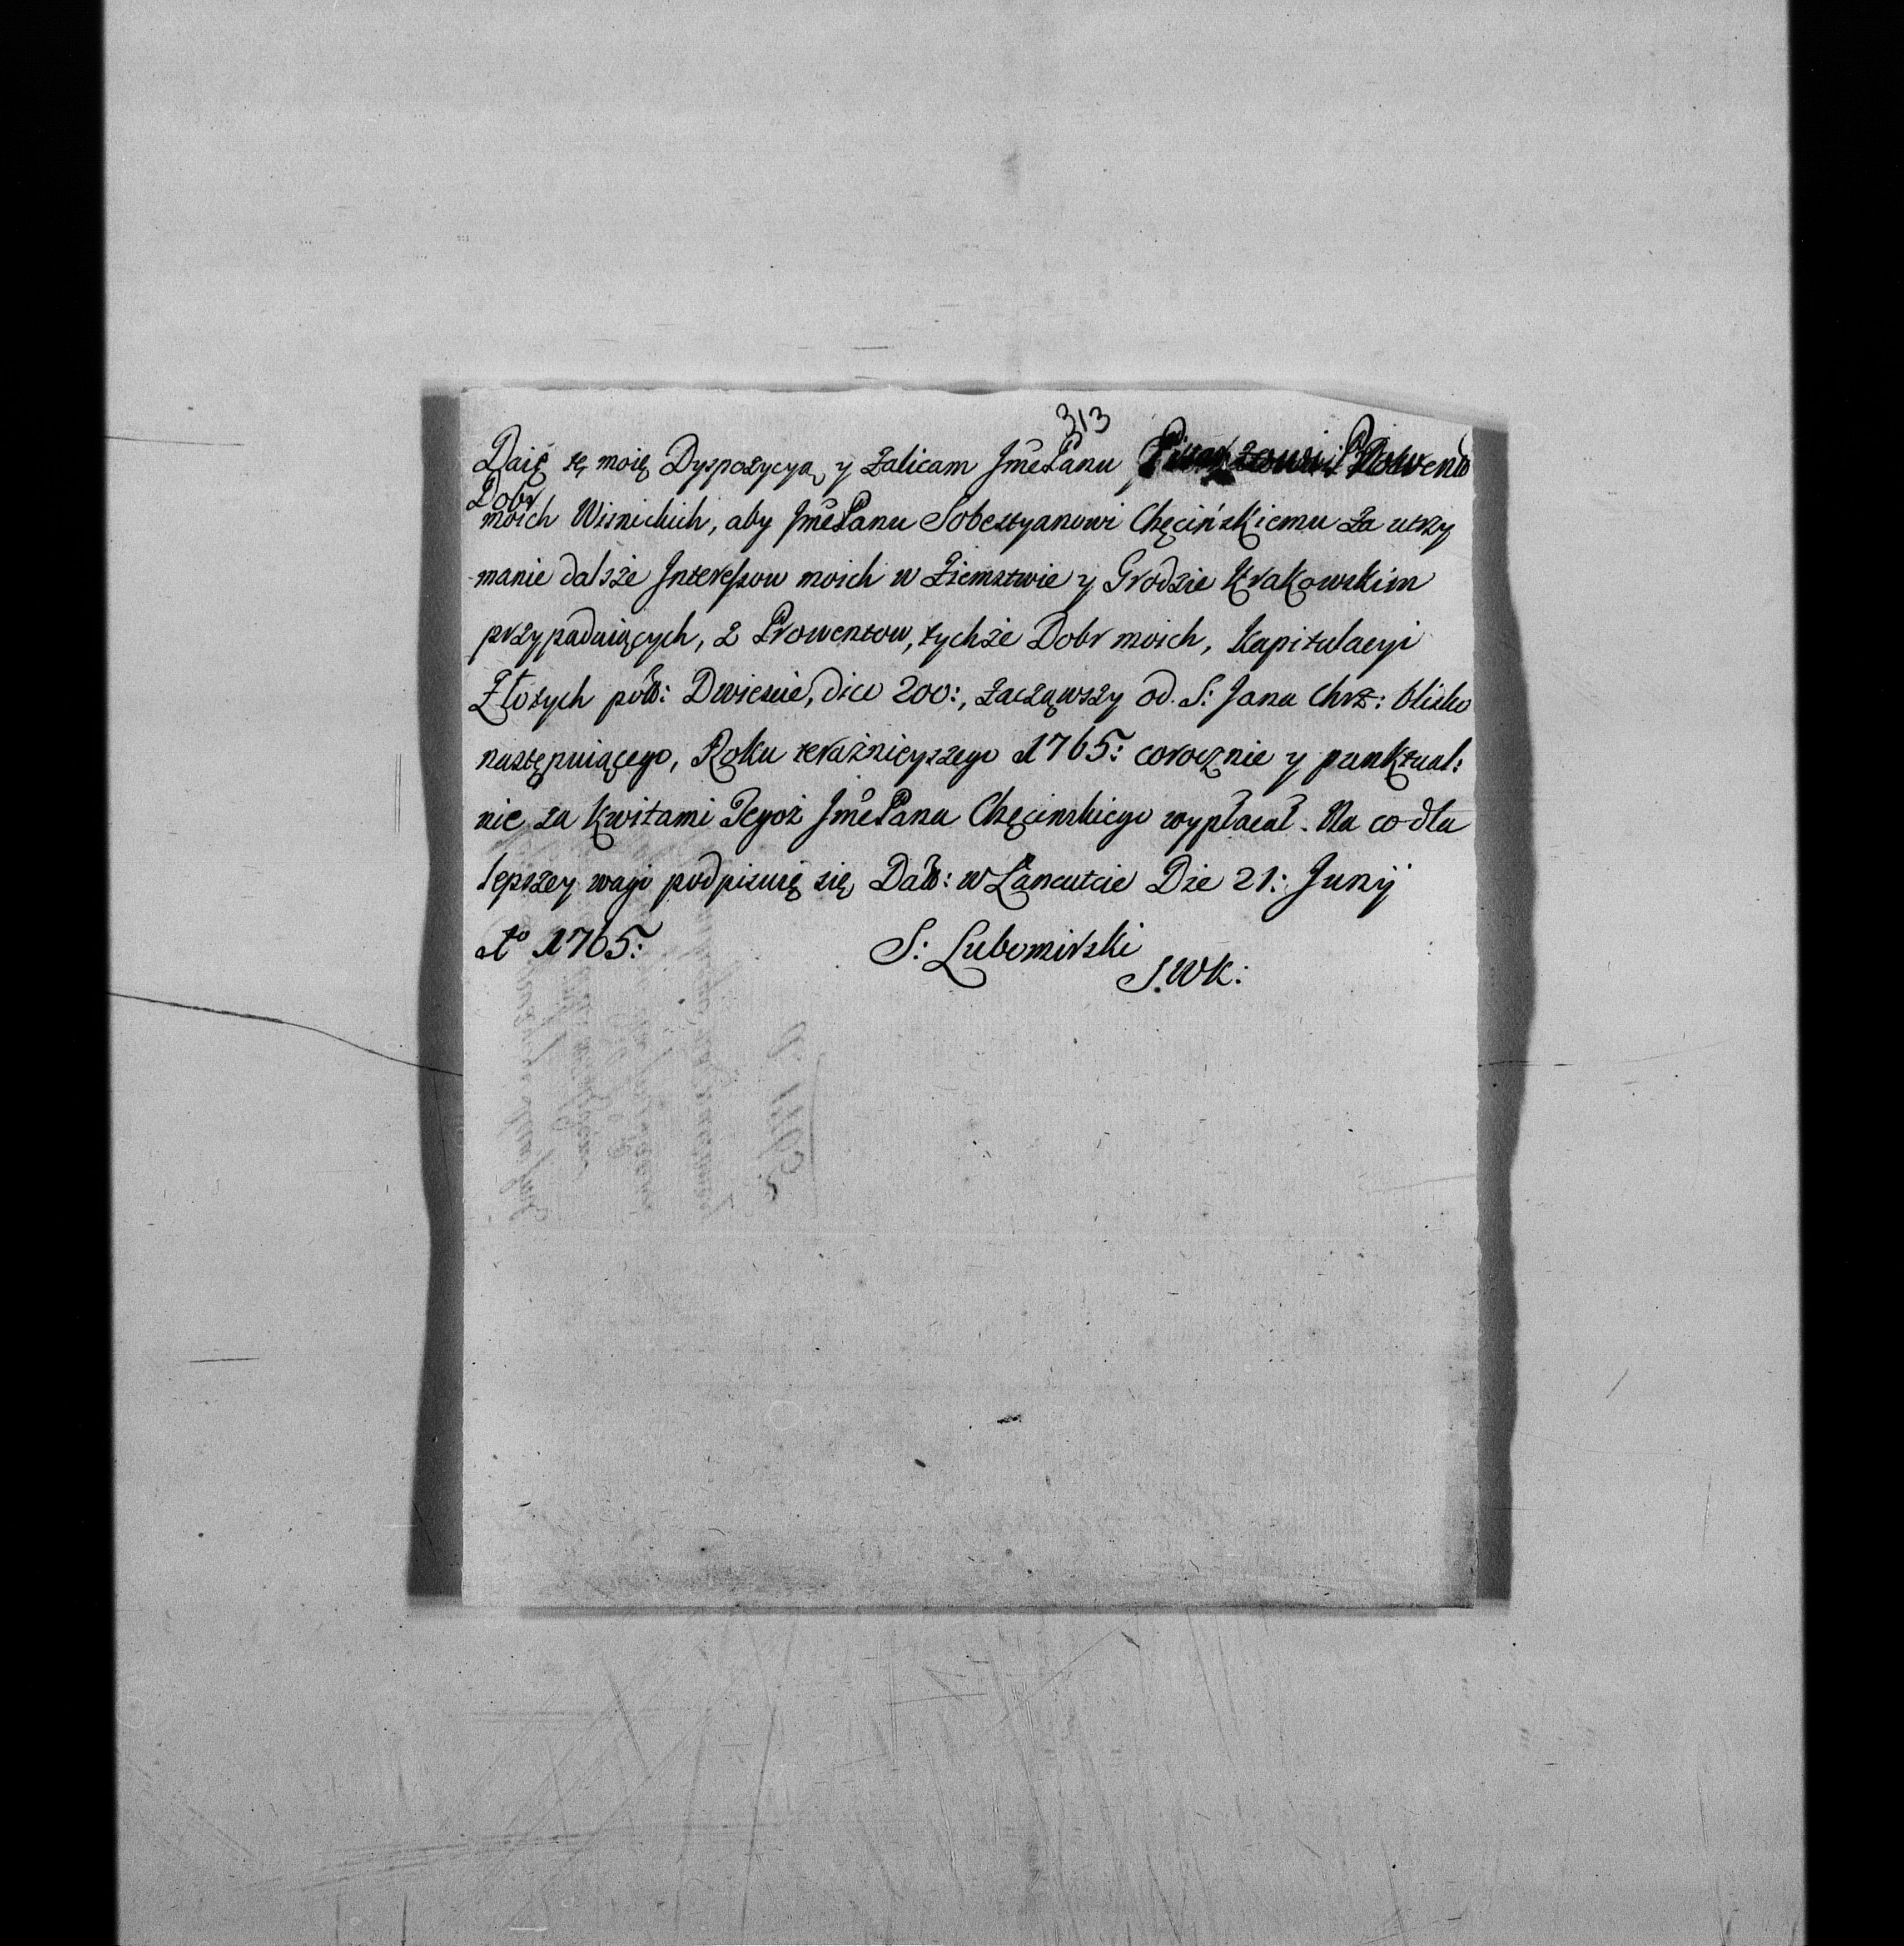 313
Daię tę moię Dyspozycyą y zalicam JmePanu Pisarzowi Prowent:
Dobr
moich Wisnickich, aby JmePanu Sobestyanowi Chęcińskiemu za utrzy
manie dalsze Interessow moich w Ziemstwie y Grodzie Krakowskim
przypadaiących, z Prowentow, tychże Dobr moich, Kapitulacyi
Złotych pols: Dwiescie, dico 200:, zacząwszy od S: Jana Chrz: blisko
następuiącego, Roku terażnieyszego 1765: corocznie y punktual:
nie za kwitami Tegoż JmePana Chęcinskiego wypłacał. Na co dla
lepszey wagi podpisuię się, Dat: w Łancutcie Die 21: Junij
Ao 1765:
S: Lubomirski
S.WK: